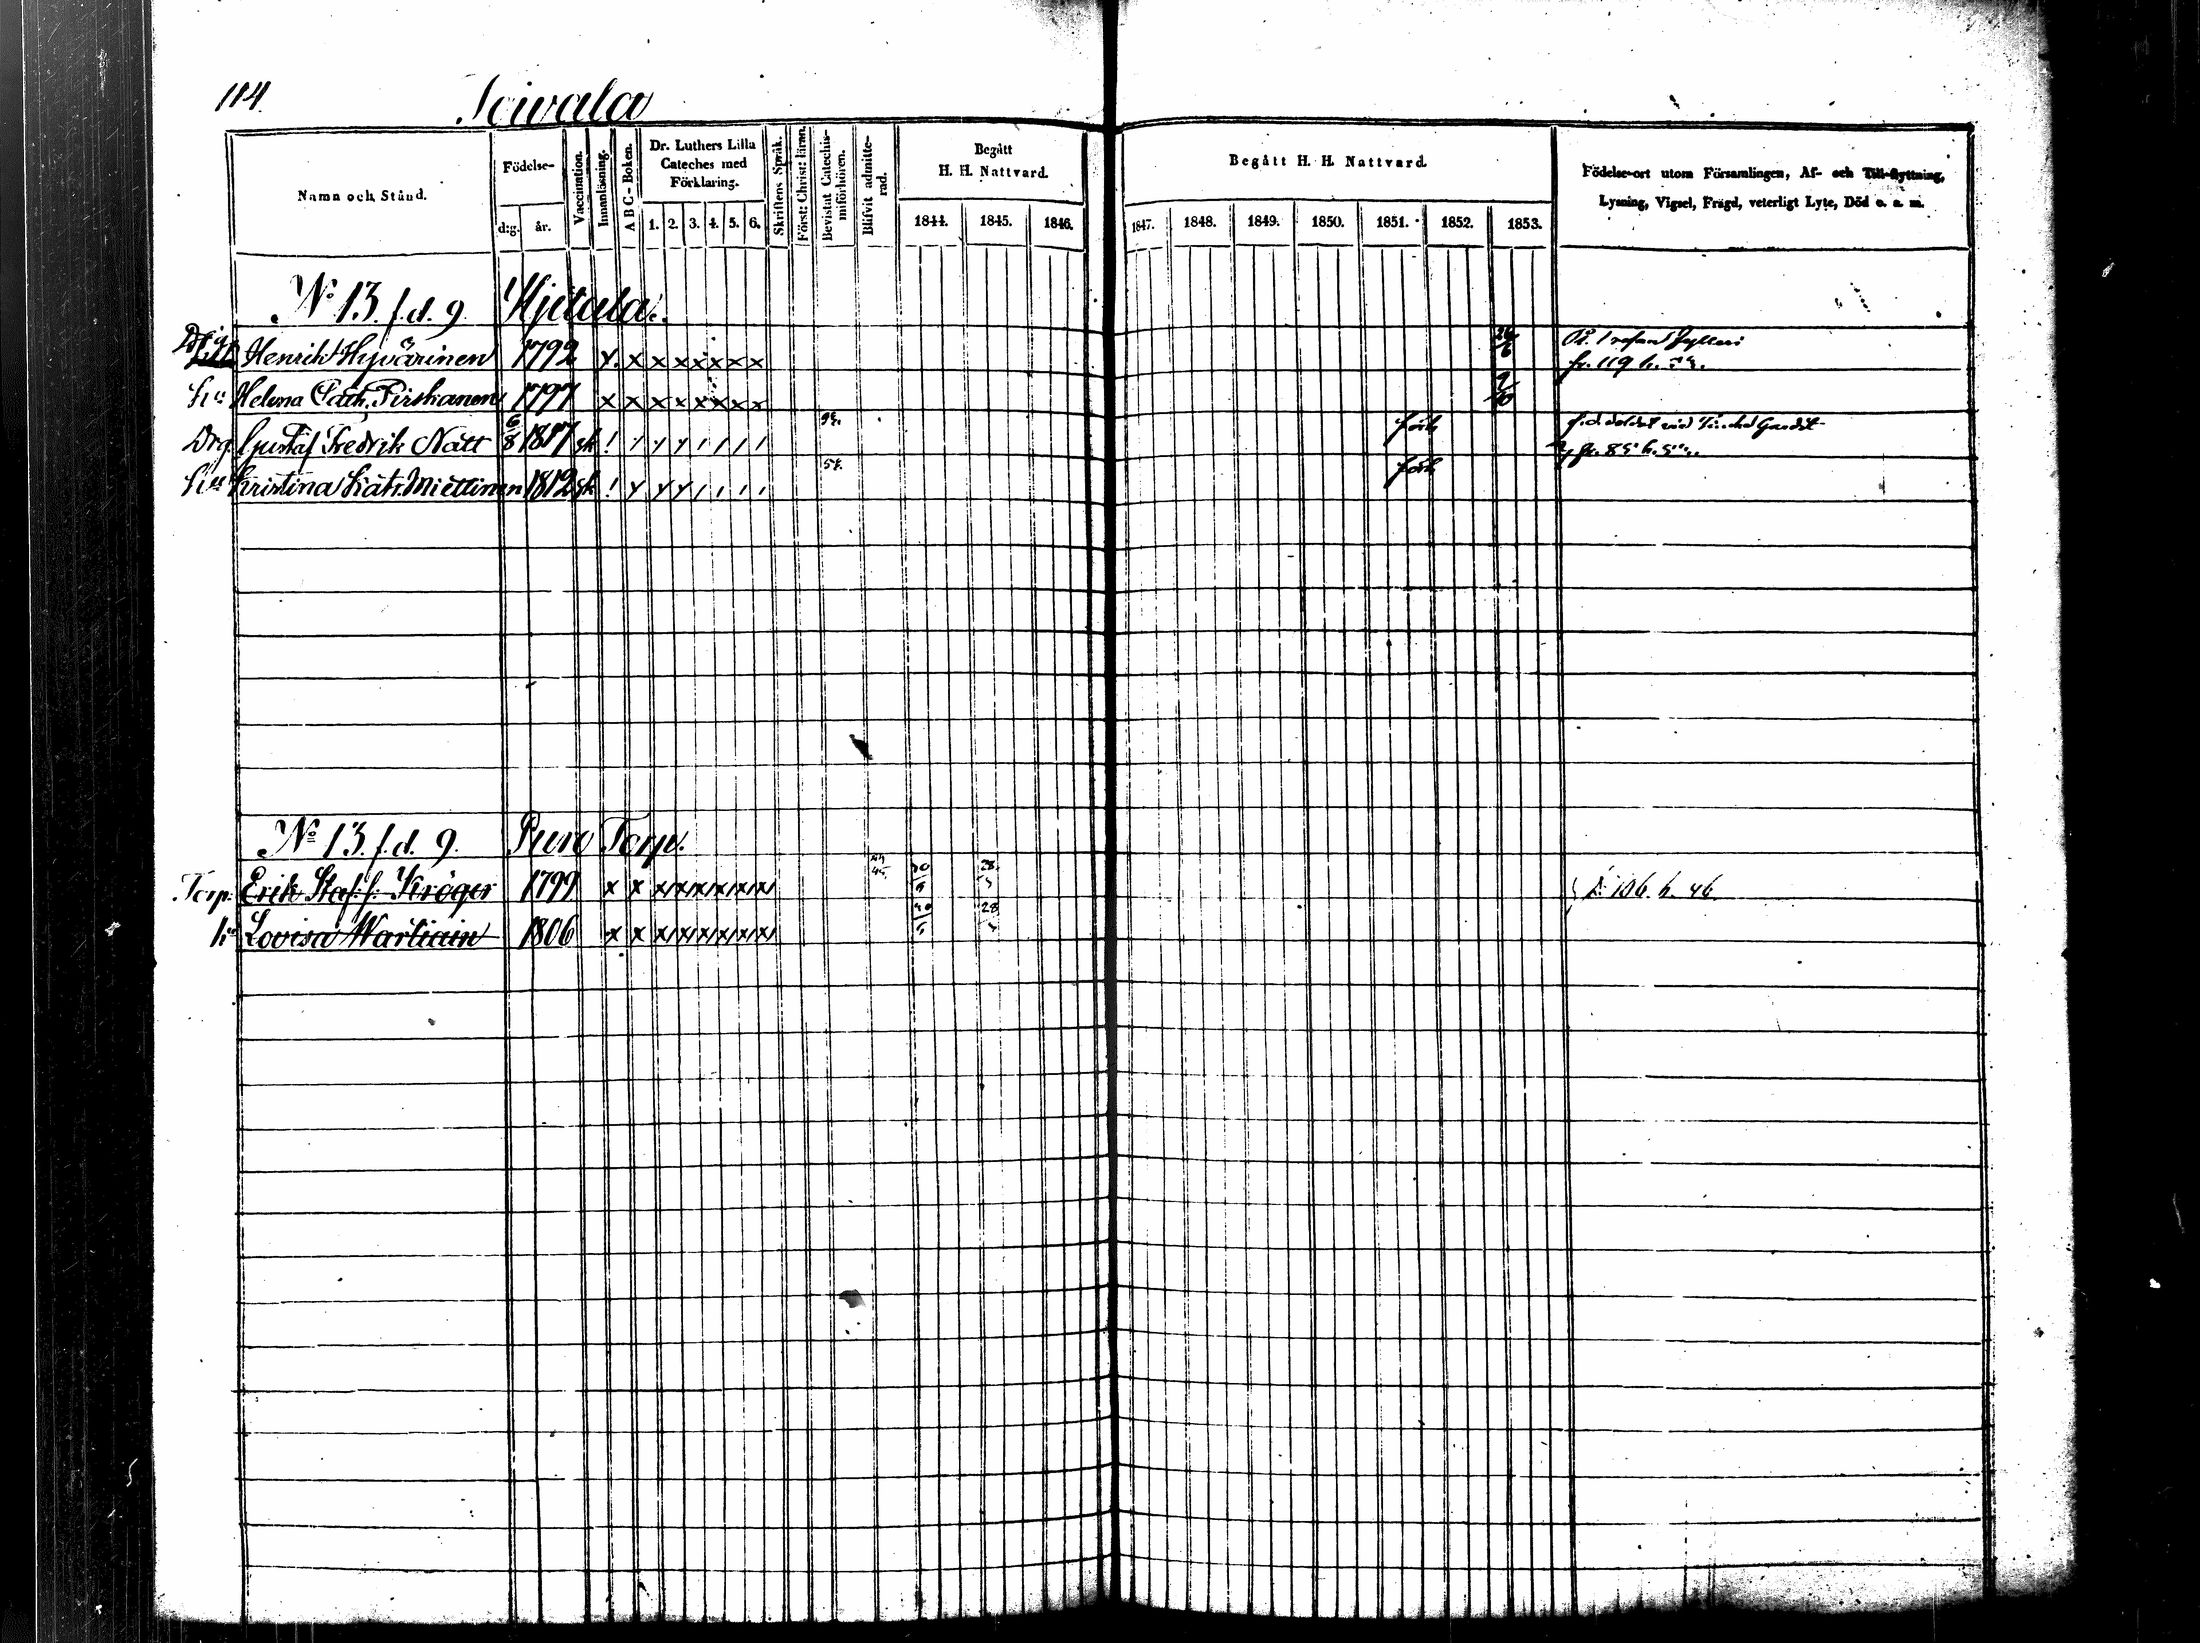 114.
Toivala
Namn och Stånd.
Födelse-
d:g. år.
Vaccination.
Innanläsning.
A B C - Boken.
Dr. Luthers Lilla Cateches med Förklaring.
1. 2. 3. 4. 5. 6.
Skriftens Språk.
Först: Christ: läran.
Bevistat Catechis-miförhören.
Blifvit admitte-rad.
Begått H. H. Nattvard.
1844. 1845. 1846.
Begått H. H. Nattvard.
1847. 1848. 1849. 1850. 1851. 1852. 1853.
Födelse-ort utom Församlingen, Af- och Till-flyttning,
Lysning, Vigsel, Frägd, veterligt Lyte, Död o. a. m.
No 13. f.d. 9. Hjetala.
Henrik Hyvärinen 1792 x x x x x x x x 26/6
fr. 119 h.
Hu Helena Cath. Pirskanen 1797 x x x x x x x x 9/10
Drg. Gustaf Fredrik Nätt 6/8 1817 sk förh f.d. soldat vid
fr. 85 h. 50.
Hu Kristina Kat. Miettinen 1812 sk förh
No 13. f.d. 9. Puro Torp.
Torp. Erik Staf.f. Kröger 1799 x x x x x x x x 30/6 28 106. h. 46.
h. Lovisa Wartiain 1806 x x x x x x x x 30/6 28